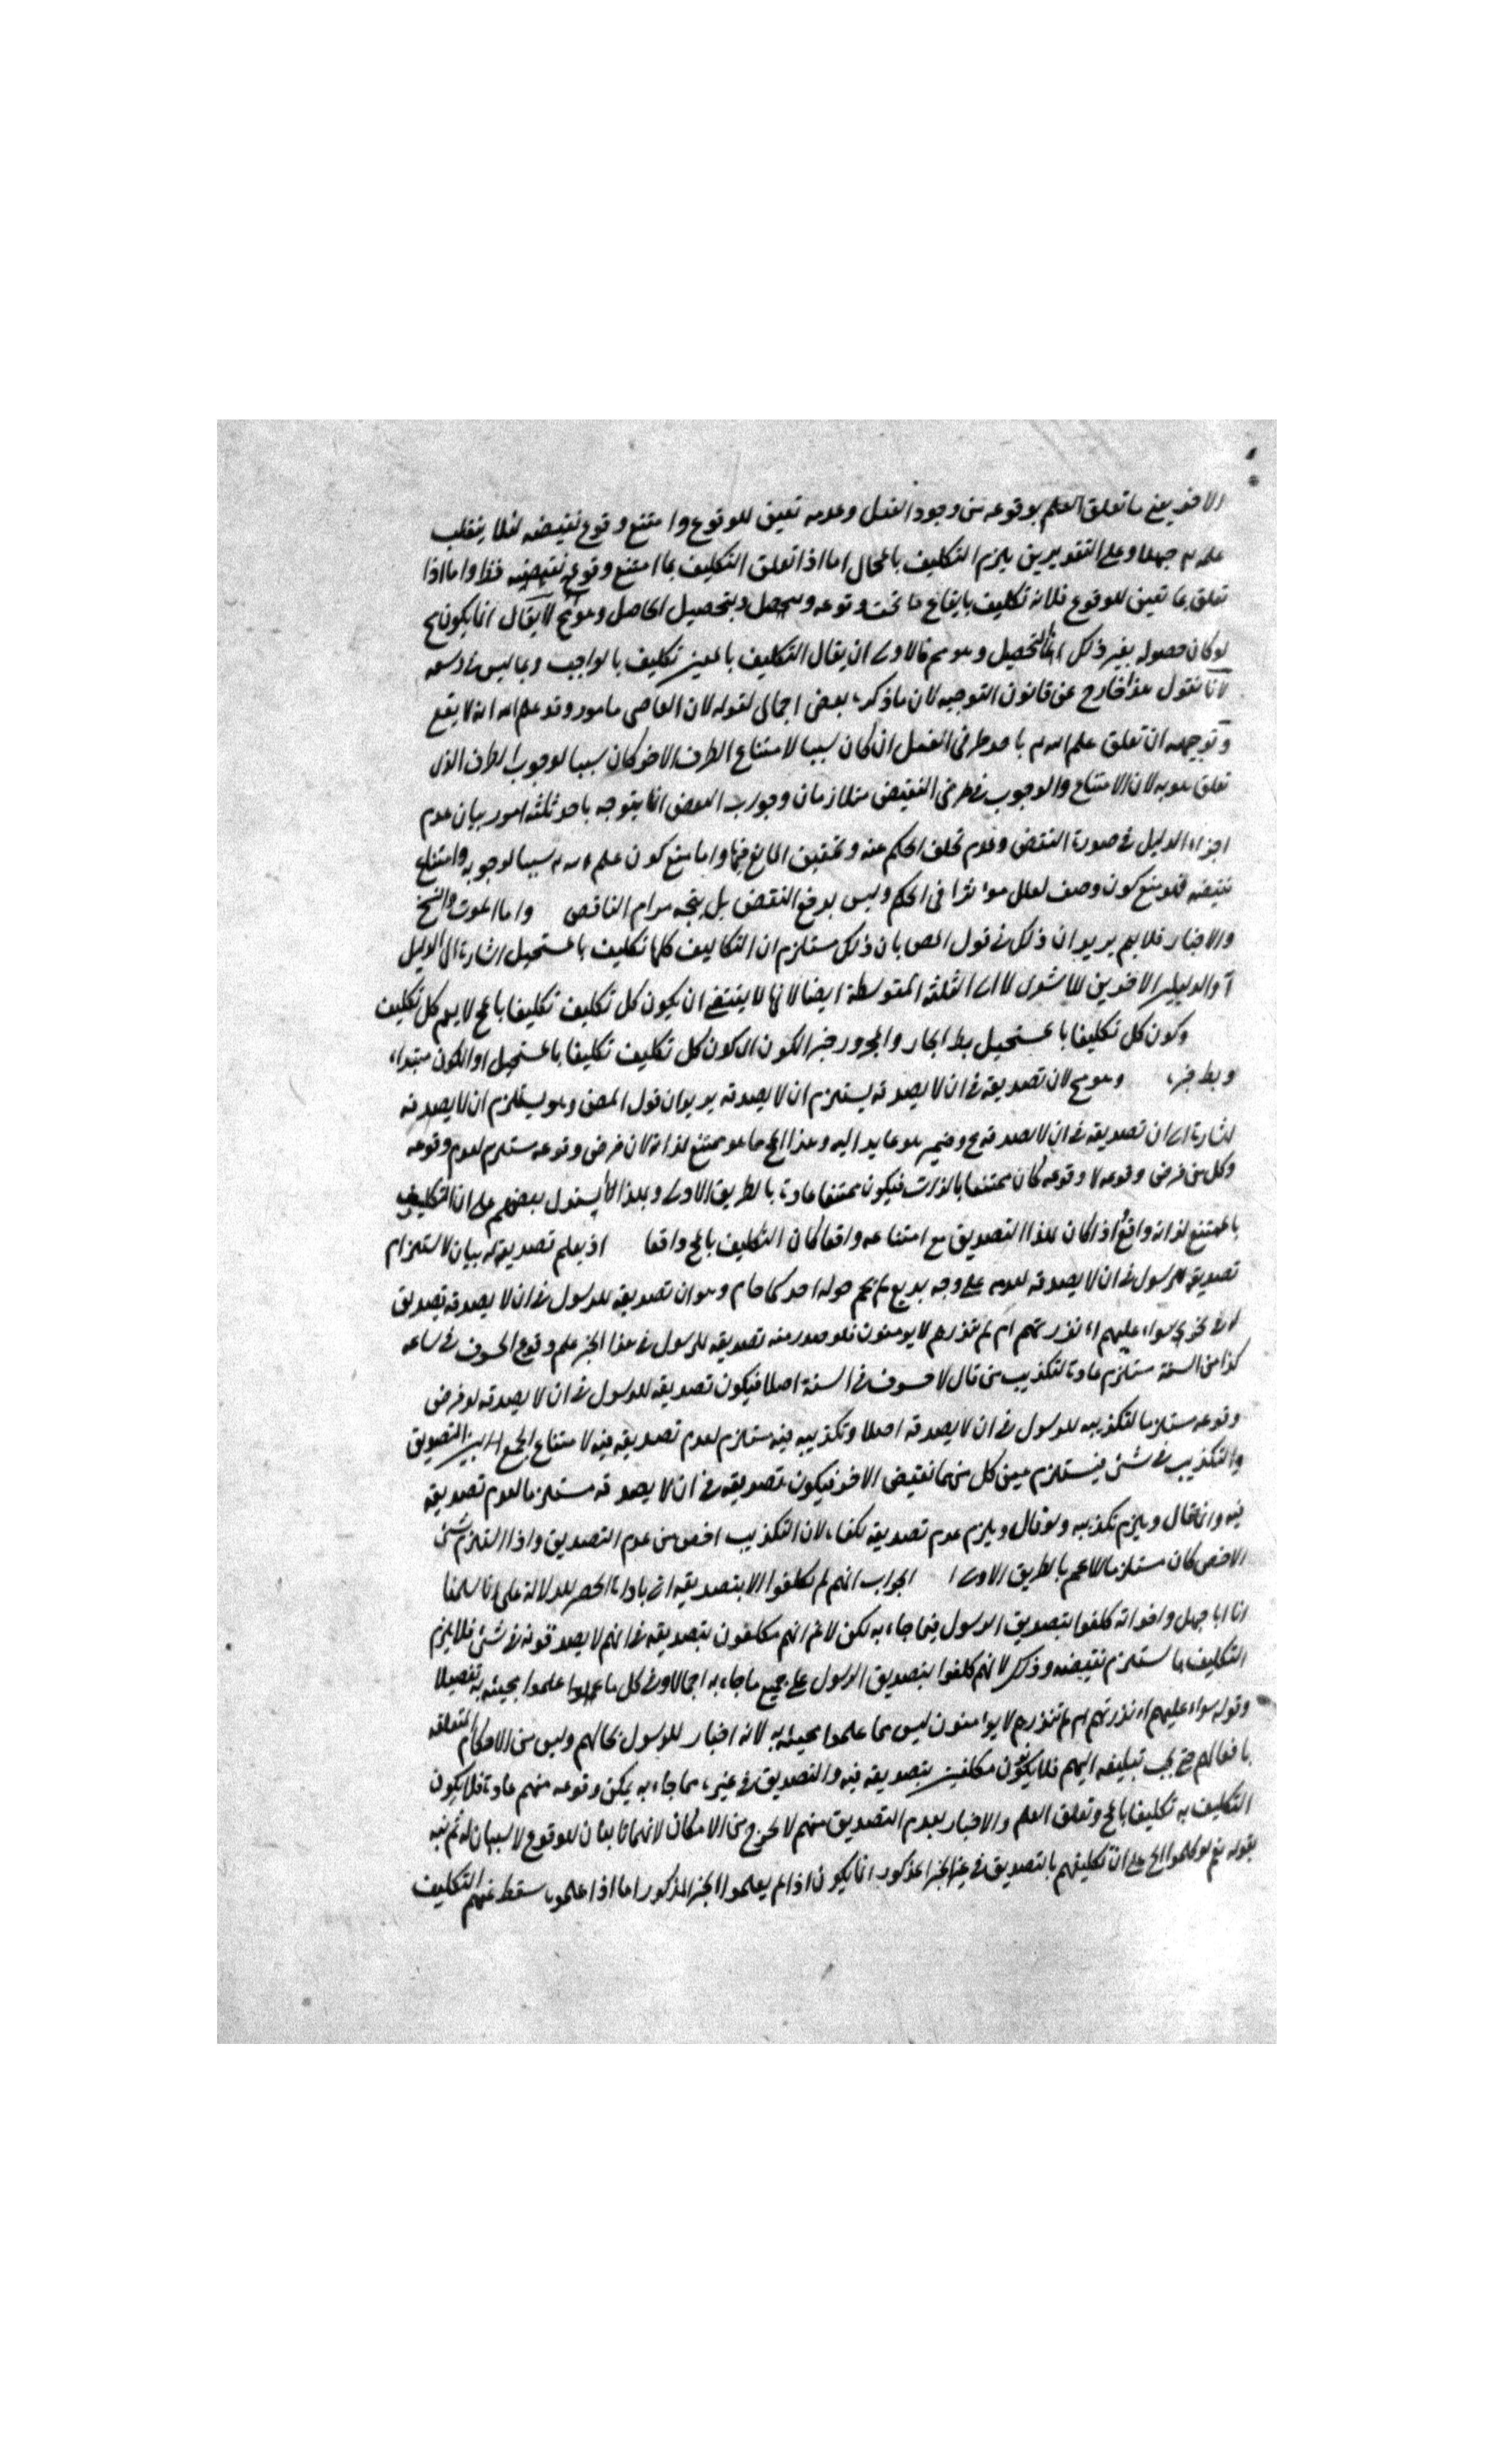 الاخر يعنى ما تعلق العلم بوقوعه من وجود الفعل وعدمه تعين للوقوع وامتنع وقوع نقيضه لئلا ينقلب
علمه جهلا وعلى التقديرين يلزم التكليف بالمحال اما اذا تعلق التكليف بما امتنع وقوع نقيضه فظ واما اذا
تعلق بما تعين للوقوع فلانه تكليف بايقاع ما وقوعه وبتحصيل الحاصل وهو مح لا يقال انما يكون مح
لو كان حصوله بغير ذلك التحصيل وهو مم فالاولى ان يقال التكليف بالمعين تكليف بالواجب وبما ليس فى وسعه
لانا نقول هذا خارج عن قانون التوجيه لان ما ذكره بعض اجمالى لقوله لان العاصى مامور وقد علم الله انه لا يقع
وتوجيهه ان تعلق علم الله باحد طرفى الفعل ان كان سببا لامتناع الطرف الاخر كان سببا لوجوب الطرف الذى
تعلق هو به لان الامتناع والوجوب فى طرفى النقيض متلازمان وجواب النقض انما يتوجه باحد ثلثة امور بيان عدم
اجزاء الدليل فى صورة النقض وعدم تخلف الحكم عنه وتحقيق المانع فيها واما منع كون علم الله سببا لوجوبه وامتناع
نقيضه فهو منع كون وصف لعلل مؤثرا فى الحكم وليس بدفع النقض بل يتجه مرام الناقض واما الموت والنسخ
والاخبار فلا يم يريد ان ذلك فى قول المص بان ذلك مستلزم ان التكاليف كلها تكليف بالمستحيل اشارة الى الدليل
والدليلين الاخرين للاشعرى لا الى الثلثة المتوسطة ايضا لانها لا يقتضى ان يكون كل تكليف تكليفا بالمح لا يعم كل تكليف
وكون كل تكليفا بالمستحيل بط الجار والمجرور خبر الكون اى كون كل تكليف تكليفا بالمستحيل او الكون مبتداء
وبط خبره وهو مح لان تصديقه فى ان لا يصدقه يستلزم ان لا يصدقه يريد ان قول المص وهو يستلزم ان لا يصدقه
اشارة الى ان تصديقه فى ان لا يصدقه مح وضمير هو عايد اليه وهذا المح ما هو ممتنع لذاته لان فرض وقوعه مستلزم لعدم وقوعه
وكل من فرض وقوعه لا وقوعه كان ممتنعا بالذات فيكون ممتنعا عادة بالطريق الاولى وبهذا يستدل بعضهم على ان التكليف
بالممتنع لذاته واقع اذ كان هذا التصديق مع امتناعه واقعا كان التكليف بالمح واقعا اذ يعلم تصديقه له بيان لاستلزام
تصديقه للرسول فى ان لا يصدقه لعدمه على وجه بديع لم يحم حوله احد كما حام وهو ان تصديقه للرسول فى ان لا يصدقه تصديق
سواء عليهم ءانذرتهم ام لم تنذرهم لا يومنون فلو صدر منه تصديقه للرسول فى هذا الخبر علم وقوع الخسوف فى ساعة
كذا من السنة مستلزم عادة لتكذيب من قال لا خسوف فى السنة اصلا فيكون تصديقه للرسول فى ان لا يصدقه لو فرض
وقوعه مستلزما لتكذيبه للرسول فى ان لا يصدقه اصلا وتكذيبه فيه مستلزم لعدم تصديقه فيه لامتناع الجمع بين التصديق
والتكذيب فى شئ فيستلزم عين كل منهما نقيض الاخر فيكون تصديقه فى ان لا يصدقه مستلزما لعدم تصديقه
فيه وانما قال ويلزم تكذيبه ولو قال ويلزم عدم تصديقه لكفاه لان التكذيب اخص من عدم التصديق واذا استلزم شئ
الاخص كان مستلزما للاعم بالطريق الاولى الجواب انهم لم يكلفوا الا بتصديقه اتى باداة الحصر للدلالة على انا سلمنا
ان ابا جهل واخوانه كلفوا بتصديق الرسول فيما جاء به لكن لا نم انهم مكلفون بتصديقه فى انهم لا يصدقونه فى شئ فلا يلزم
التكليف بما يستلزم نقيضه وذلك لانهم كلفوا بتصديق الرسول على جميع ما جاء به اجمالا وفى كل ما علموا بمجيئه به تفصيلا
وقوله سواء عليهم ءانذرتهم ام لم تنذرهم لا يومنون ليس مما علموا بمجيئه به لانه اخبار للرسول بحالهم وليس من الاحكام المتعلقة
بافعالهم حتى يجب تبليغه اليهم فلا يكونون مكلفين بتصديقه فيه والتصديق فى غيره مما جاء به يمكن وقوعه منهم عادة فلا يكون
التكليف به تكليفا بالمح وتعلق العلم والاخبار بعدم التصديق منهم لا يخرج من الامكان لانهما تابعان للوقوع لا سببان له ثم نبه
بقوله نعم لو كلفوا الخ على ان تكليفهم بالتصديق فى غير الخبر المذكور انما يكون اذا لم يعلموا الخبر المذكور اما اذا علموه سقط عنهم التكليف